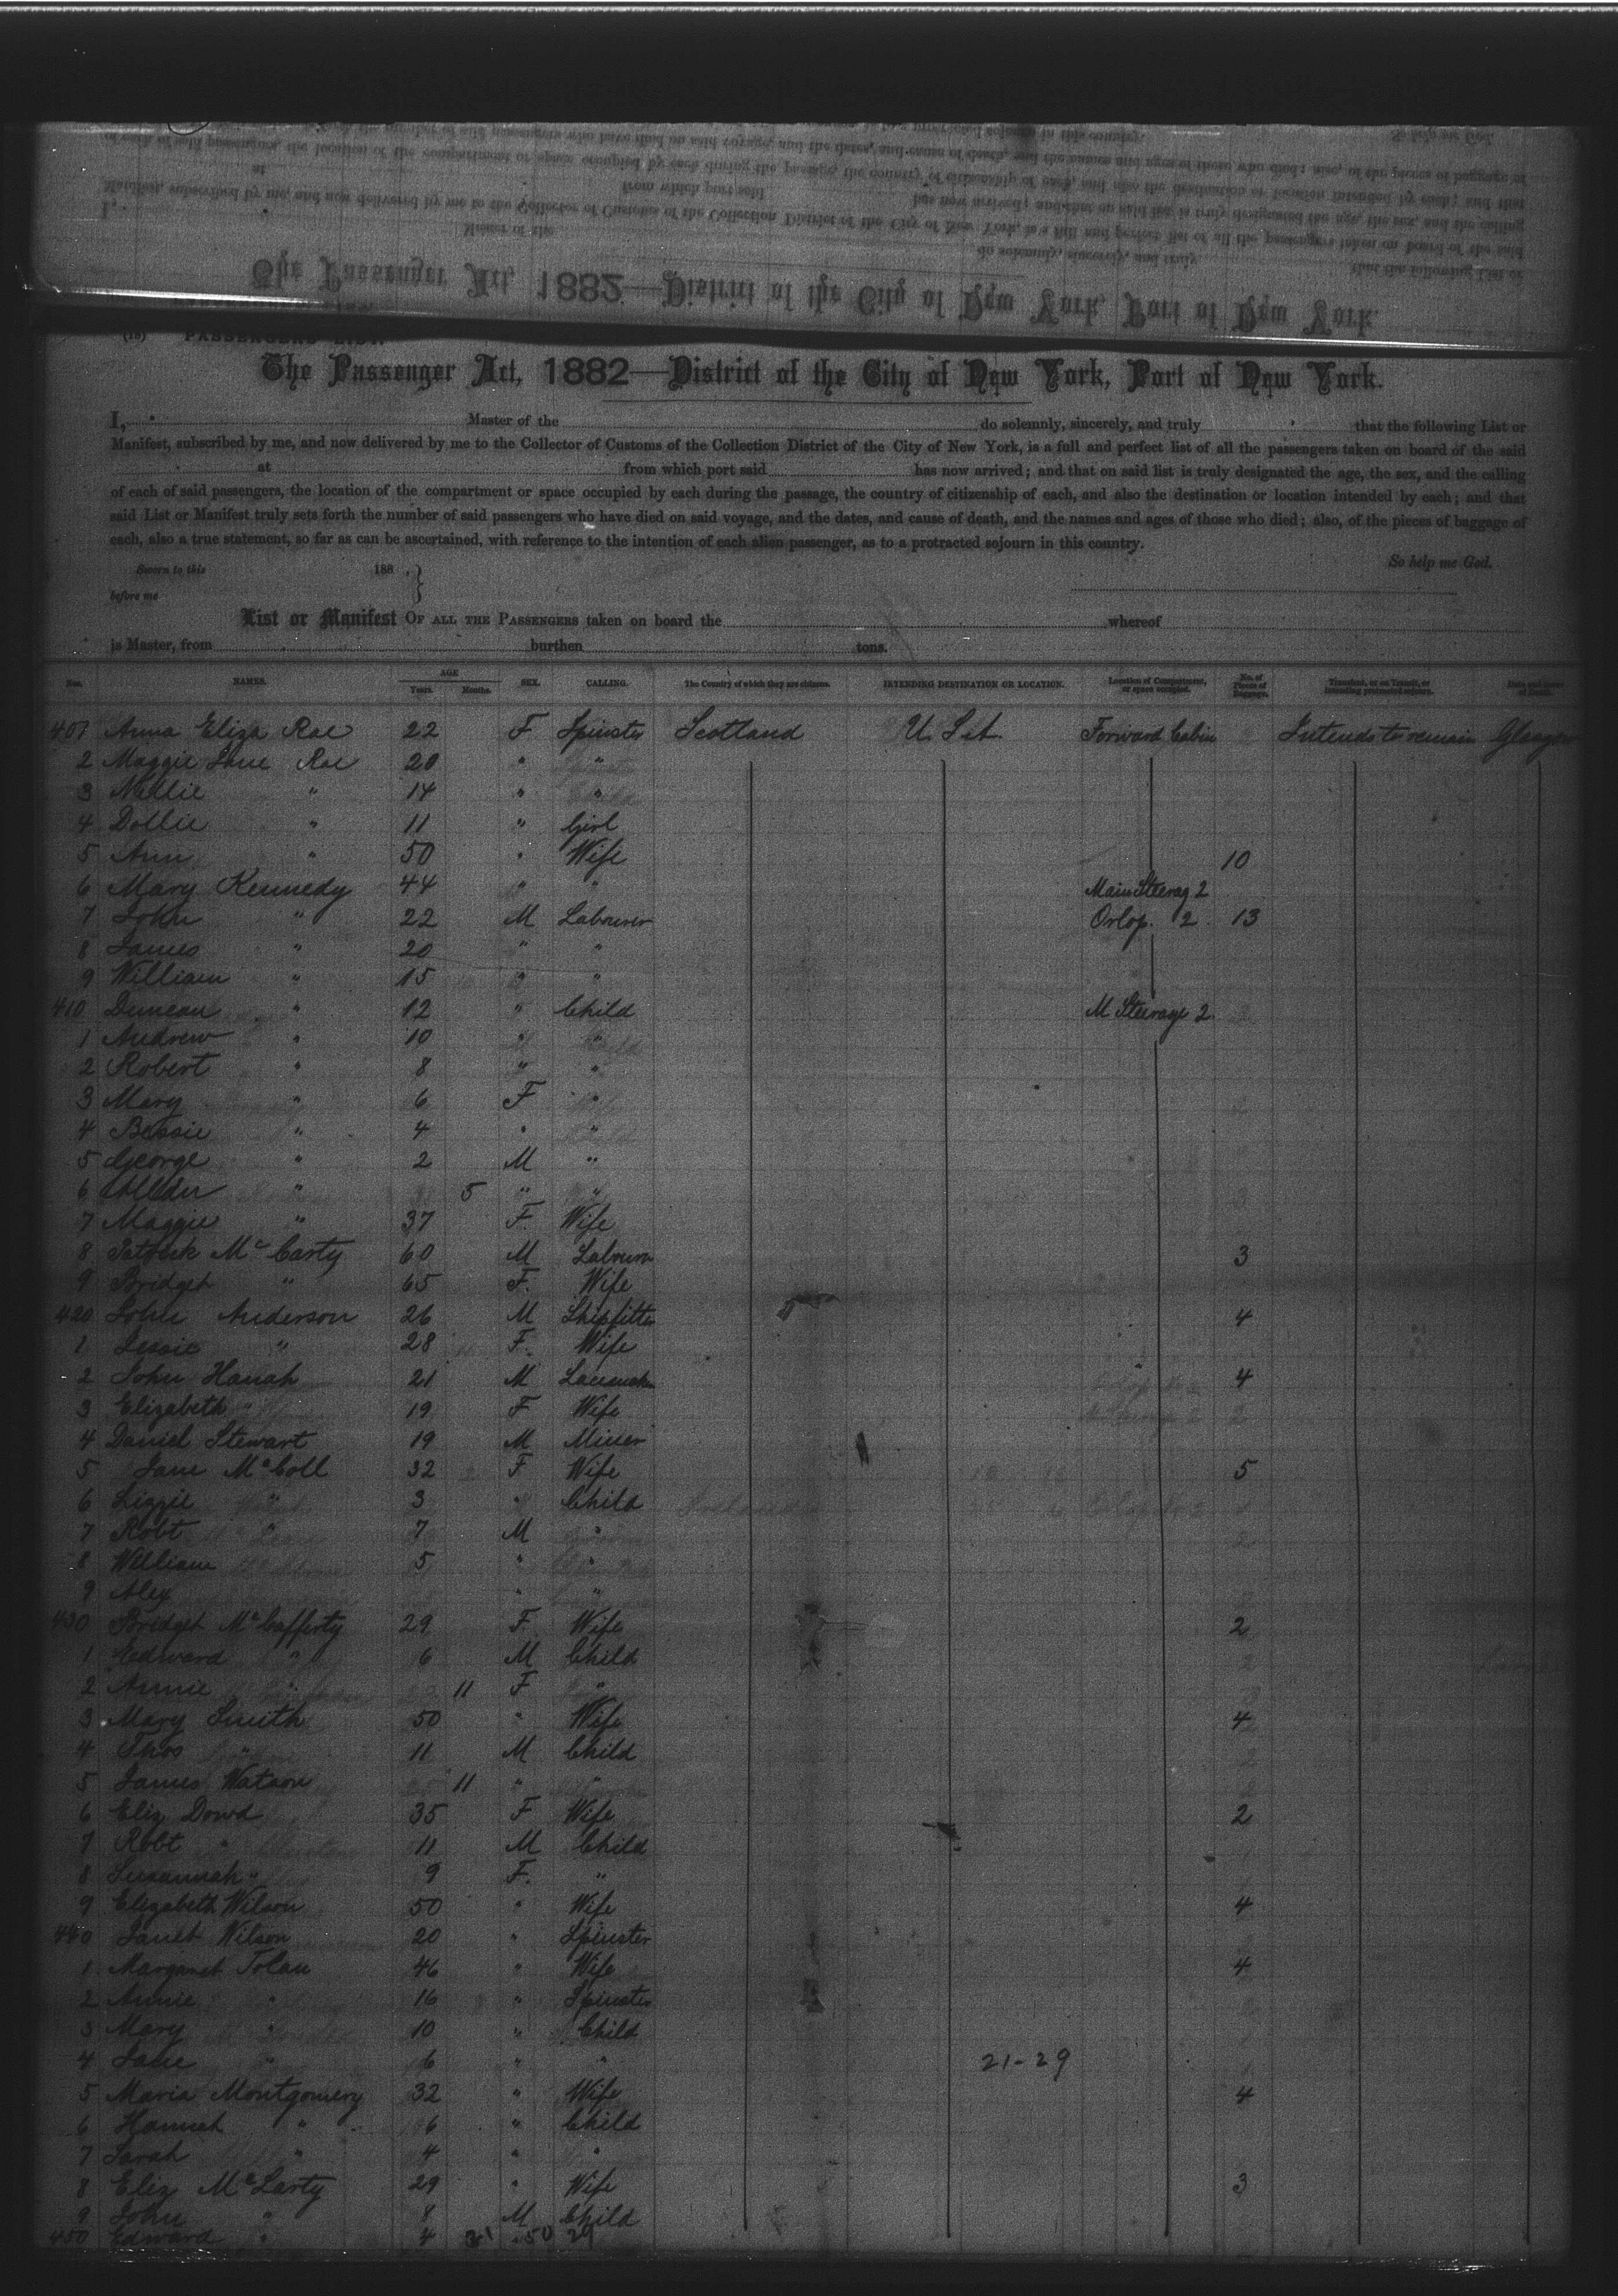 The Passenger Act, 1882—District of the City of New York, Port of New York.
(18) PASSENGERS' LIST.
The Passenger Act, 1882—District of the City of New York, Port of New York.
I, Master of the do solemnly, sincerely, and truly that the following List or
Manifest, subscribed by me, and now delivered by me to the Collector of Customs of the Collection District of the City of New York, is a full and perfect list of all the passengers taken on board of the said
at from which port said has now arrived; and that on said list is truly designated the age, the sex, and the calling
of each of said passengers, the location of the compartment or space occupied by each during the passage, the country of citizenship of each, and also the destination or location intended by each; and that
said List or Manifest truly sets forth the number of said passengers who have died on said voyage, and the dates, and cause of death, and the names and ages of those who died; also, of the pieces of baggage of
each, also a true statement, so far as can be ascertained, with reference to the intention of each alien passenger, as to a protracted sojourn in this country.
So help me God.
Sworn to this 188
before me
List or Manifest OF ALL THE PASSENGERS taken on board the whereof
is Master, from burthen tons.
Nos. NAMES. AGE Years. Months. SEX. CALLING. The Country of which they are citizens. INTENDING DESTINATION OR LOCATION. Location of Compartment, or space occupied. No. of Pieces of Baggage. Transient, or in Transit, or intending protracted sojourn. Date and cause of Death.
401 Anna Eliza Rae 22 F Spinster Scotland U. S. A. Forward Cabin Intends to remain Glasgow
2 Maggie Jane Rae 20 " "
3 Nellie " 14 " "
4 Dollie " 11 " Girl
5 Ann " 50 " Wife 10
6 Mary Kennedy 44 " " Main Steerag 2
7 John " 22 M Labourer Orlop. 2 13
8 James " 20 " "
9 William " 15 " "
410 Duncan " 12 " Child M Steerage 2
1 Andrew " 10 " "
2 Robert " 8 " "
3 Mary " 6 F "
4 Bessie " 4 " "
5 George " 2 M "
6 " 5 " "
7 Maggie " 37 F. Wife
8 Patrick McCarty 60 M Labourer 3
9 Bridget " 65 F. Wife
420 John Anderson 26 M Shipfitter 4
1 Jessie " 28 F. Wife
2 John Hanah 21 M " 4
3 Elizabeth " 19 F Wife
4 Daniel Stewart 19 M Miner
5 Jane McColl 32 F Wife 5
6 Lizzie " 3 " Child
7 Robt " 7 M "
8 William 5 " "
9 Alex " "
430 Bridget McCafferty 29 F. Wife 2
1 Edward " 6 M Child
2 Annie " 11 F "
3 Mary Smith 50 " Wife 4
4 Thos " 11 M Child
5 James Watson 11 " "
6 Eliz Dowd 35 F Wife 2
7 Robt " 11 M Child
8 Susannah " 9 F. "
9 Elizabeth Wilson 50 " Wife 4
440 Janet Wilson 20 " Spinster
1 Margaret Tolan 46 " Wife 4
2 Annie " 16 " Spinster
3 Mary " 10 " Child
4 Jane " 6 " " 21-29
5 Maria Montgomery 32 " Wife 4
6 Hannah " 6 " Child
7 Sarah " 4 " "
8 Eliz McLarty 29 " Wife 3
9 John " 8 M Child
450 Edward " 4 50 29